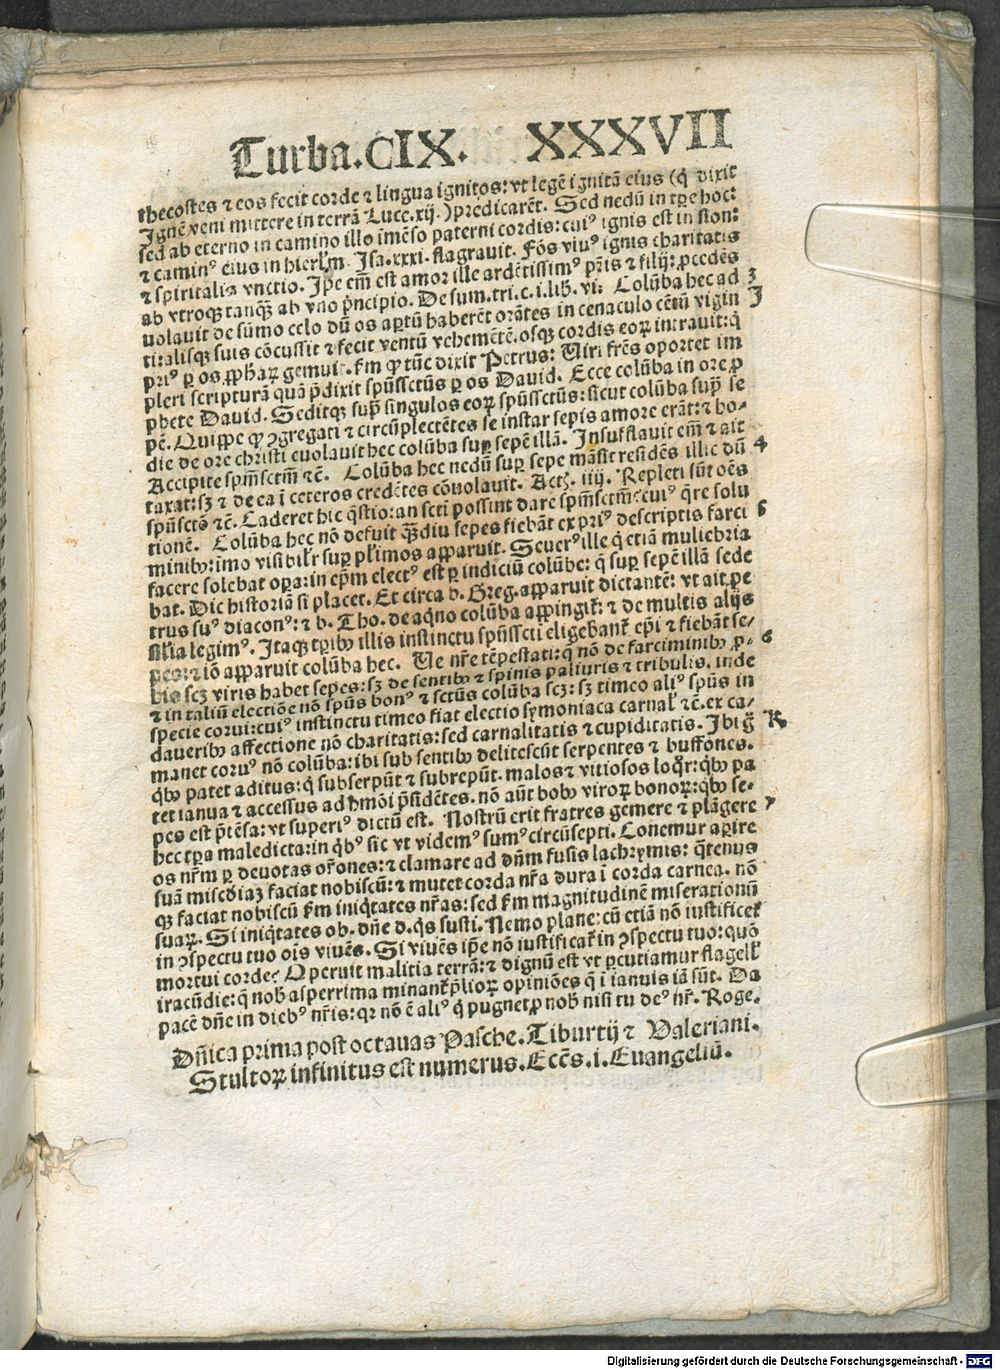 Turba.CIX. XXXVII
thecostes ⁊ eos fecit corde ⁊ lingua ignitos: vt legē ignitā eius (q̇ dixit
Ignē veni mittere in terrā Luce.xij.) predicarēt. Sed nedū in tp̄e hoc:
sed ab eterno in camino illo imēso paterni cordis: cui⁹ ignis est in sion:
⁊ camin⁹ eius in hierl̄m. Isa.xxxi. flagrauit. Fōs viu⁹ ignis charitatis
⁊ spiritalis vnctio. Ip̄e em̄ est amor ille ardētissim⁹ pr̄is ⁊ filij: ꝓcedēs
ab vtroqꝫ tanqꝫ ab vno p̄ncipio. De sum.tri.c.i.lib.vi. Colūba hec ad 3
uolauit de sūmo celo dū os aꝑtū haberēt orātes in cenaculo cētū vigin J
ti: alisqꝫ suis cōcussit ⁊ fecit ventū vehemētē. osqꝫ cordis eoꝝ intrauit: q̇
pri⁹ ꝑ os ꝓphaꝝ gemuit. k̄m ꝙ tūc dixit Petrus: Uiri fr̄es oportet im
pleri scripturā quā p̄dixit spūssctūs ꝑ os Dauid. Ecce colūba in ore ꝓ
phete Dauid. Seditqꝫ sup̄ singulos eoꝝ spūssctūs: sicut colūba sup̄ se
pē. Quippe ꝙ ꝯgregati ⁊ circūplectētes se instar sepis amore erāt: ⁊ ho-
die de ore christi euolauit hec colūba suꝑ sepē illā. Insufflauit em̄ ⁊ ait
Accipite spm̄sctm̄ ⁊c̄. Colūba hec nedū suꝑ sepe māsit residēs illic dū 4
taxat: sꝫ ⁊ de ea i ceteros credētes cōuolauit. Act. iiij. Repleti sūt oēs
spūsctō ⁊c̄. Caderet hic q̄stio: an scti possint dare spm̄sctm̄: cui⁹ q̄re solu
tionē. Colūba hec nō defuit qꝫdiu sepes fiebāt ex pri⁹ descriptis farci 5
minibꝰ: imo visibilr̄ suꝑ pl̄imos apparuit. Seuer⁹ ille q̇ etiā muliebria
facere solebat oꝑa: in ep̄m elect⁹ est ꝑ indiciū colūbe: q̇ suꝑ sepē illā sede
bat. Dic historiā si placet. Et circa b. Greg. apparuit dictantē: vt ait pe
trus su⁹ diacon⁹: ⁊ b. Tho. de aq̇no colūba appingit̄: ⁊ de multis alijs
legim⁹. Itaqꝫ tꝑibꝰ illis instinctu spūsscti eligebant̄ ep̄i ⁊ fiebāt se-
pes: ⁊ iō apparuit colūba hec. Ue nr̄e tēpestati: q̄ nō de farciminibꝰ ꝓ- 6
bis scꝫ viris habet sepes: sꝫ de sentibꝰ ⁊ spinis paliuris ⁊ tribulis. inde
⁊ in taliū electiōe nō spūs bon⁹ ⁊ sctūs colūba scꝫ: sꝫ timeo ali⁹ spūs in
specie corui: cui⁹ instinctu timeo fiat electio symoniaca carnal̄ ⁊c̄. ex ca-
daueribꝰ affectione nō charitatis: sed carnalitatis ⁊ cupiditatis. Ibi g̈ K
manet coru⁹ nō colūba: ibi sub sentibꝰ delitescūt serpentes ⁊ buffones.
q̇bꝰ patet aditus: q̇ subserpūt ⁊ subrepūt. malos ⁊ vitiosos loq̄r: q̇bꝰ pa
tet ianua ⁊ accessus ad hm̄oi p̄sidētes. nō aūt bobꝰ viroꝝ bonoꝝ: q̇bꝰ se-
pes est p̄tēsa: vt superi⁹ dictū est. Nostrū erit fratres gemere ⁊ plāgere 7
hec tp̄ra maledicta: in q̇b⁹ sic vt videm⁹ sum⁹ circūsepti. Conemur aꝑire
os nr̄m ꝑ deuotas or̄ones: ⁊ clamare ad dn̄m fusis lachrymis: q̄tenus
suā miscdiaꝫ faciat nobiscū: ⁊ mutet corda nr̄a dura i corda carnea. nō
qꝫ faciat nobiscū k̄m iniq̇tates nr̄as: sed k̄m magnitudinē miserationū
suaꝝ. Si iniq̇tates ob. dn̄e d. q̇s susti. Nemo plane: cū etiā nō iustificet̄
in ꝯspectu tuo oīs viuēs. Si viuēs ip̄e nō iustificat̄ in ꝯspectu tuo: quō
mortui corde? Operuit malitia terrā: ⁊ dignū est vt ꝑcutiamur flagell̄
iracūdie: q̄ nob̄ asperrima minant̄ p̄lioꝝ opiniōes q̄ i ianuis iā sūt. Da
pacē dn̄e in dieb⁹ nr̄is: qr nō ē ali⁹ q̇ pugnet ꝓ nob̄ nisi tu de⁹ nr̄. Roge.
Dn̄ica prima post octauas Pasche. Tiburtij ⁊ Valeriani.
Stultoꝝ infinitus est numerus. Eccēs.i. Euangeliū.
Digitalisierung gefördert durch die Deutsche Forschungsgemeinschaft - DFG